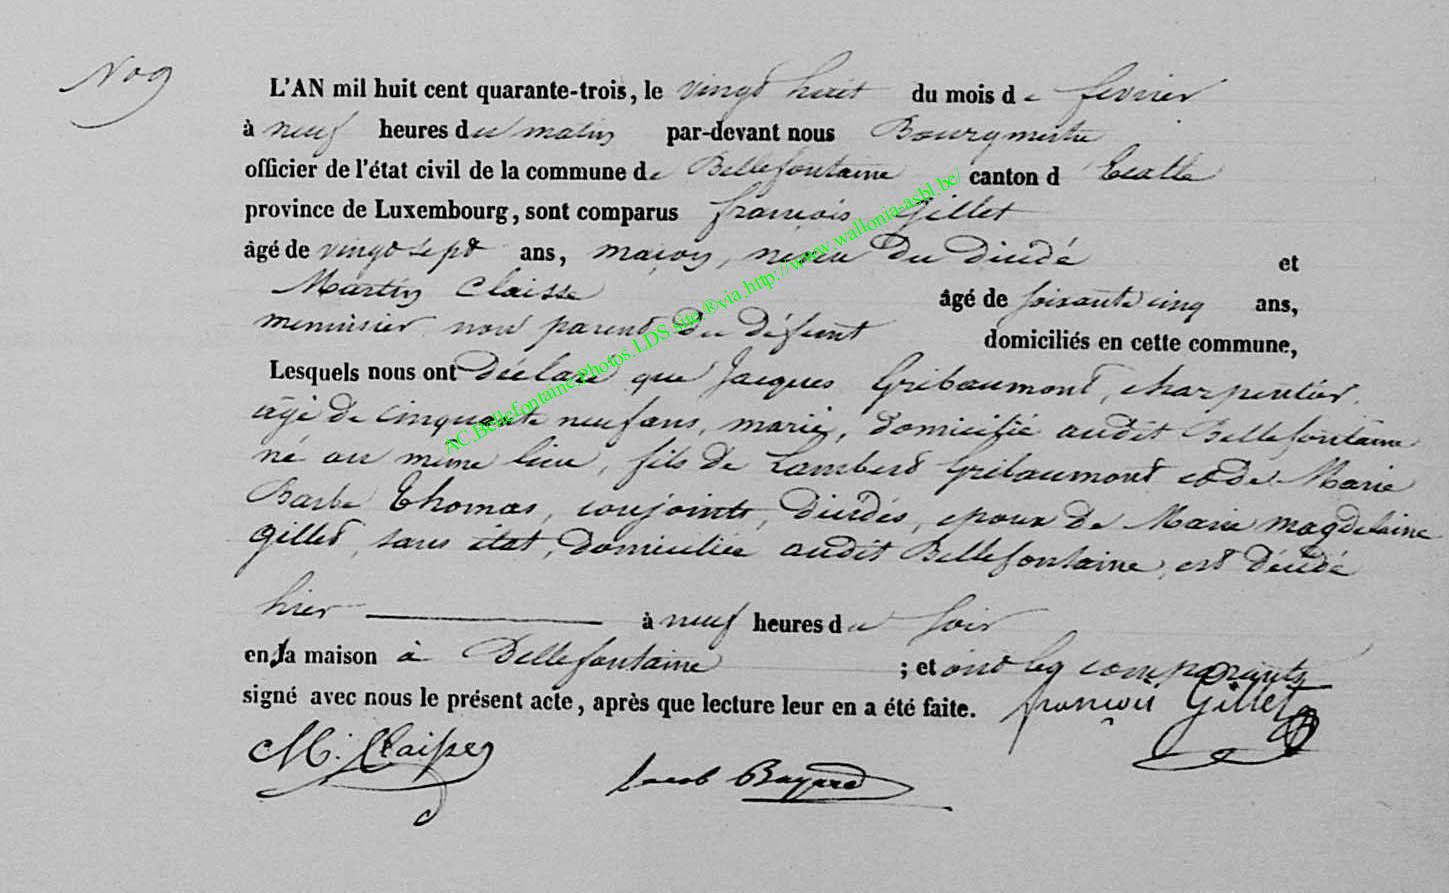 No 9
L'AN mil huit cent quarante-trois, le vingt huit du mois de fevrier
à neuf heures du matin par-devant nous Bourgmestre
officier de l'état civil de la commune de Bellefontaine canton d'Etalle
province de Luxembourg, sont comparus françois Gillet
âgé de vingt sept ans, maçon, neveu du décédé et
Martin Claisse âgé de soixante cinq ans,
menuisier non parent du défunt domiciliés en cette commune,
Lesquels nous ont déclaré que Jacques Gribaumont, charpentier,
âgé de cinquante neuf ans, marié, domicilié audit Bellefontaine
né au même lieu, fils de Lambert Gribaumont et de Marie
Barbe Thomas, conjoints, décédés, epoux de Marie magdelaine
Gillet, sans état, domiciliée audit Bellefontaine, est décédé
hier à neuf heures du soir
en la maison à Bellefontaine ; et ont les comparants
signé avec nous le présent acte, après que lecture leur en a été faite. françois Gillet
M. Claisse
Jacob Bayard
AC.Bellefontaine.Photos.LDS.site.®via.http://www.wallonia-asbl.be/